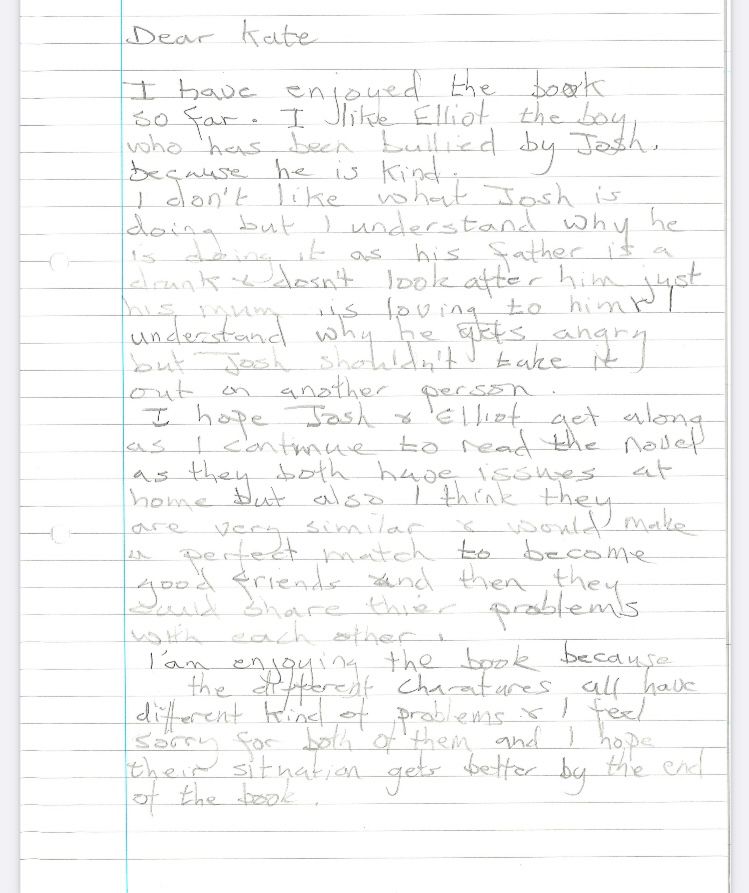 Dear Kate
I have enjoyed the book
so far. I like Elliot the boy
who has been bullied by Josh.
because he is kind.
I don't like what Josh is
doing but I understand why he
is doing it as his father is a
drunk & dosn't look after him just
his mum is loving to him I
understand why he gets angry
but Josh shouldn't take it
out on another person.
I hope Josh & Elliot get along
as I continue to read the novel
as they both have issues at
home but also I think they
are very similar & would make
a perfect match to become
good friends and then they
could share thier problems
with each other.
I'am enjoying the book because
the different charatures all have
different kind of problems & I feel
sorry for both of them and I hope
their situation gets better by the end
of the book.